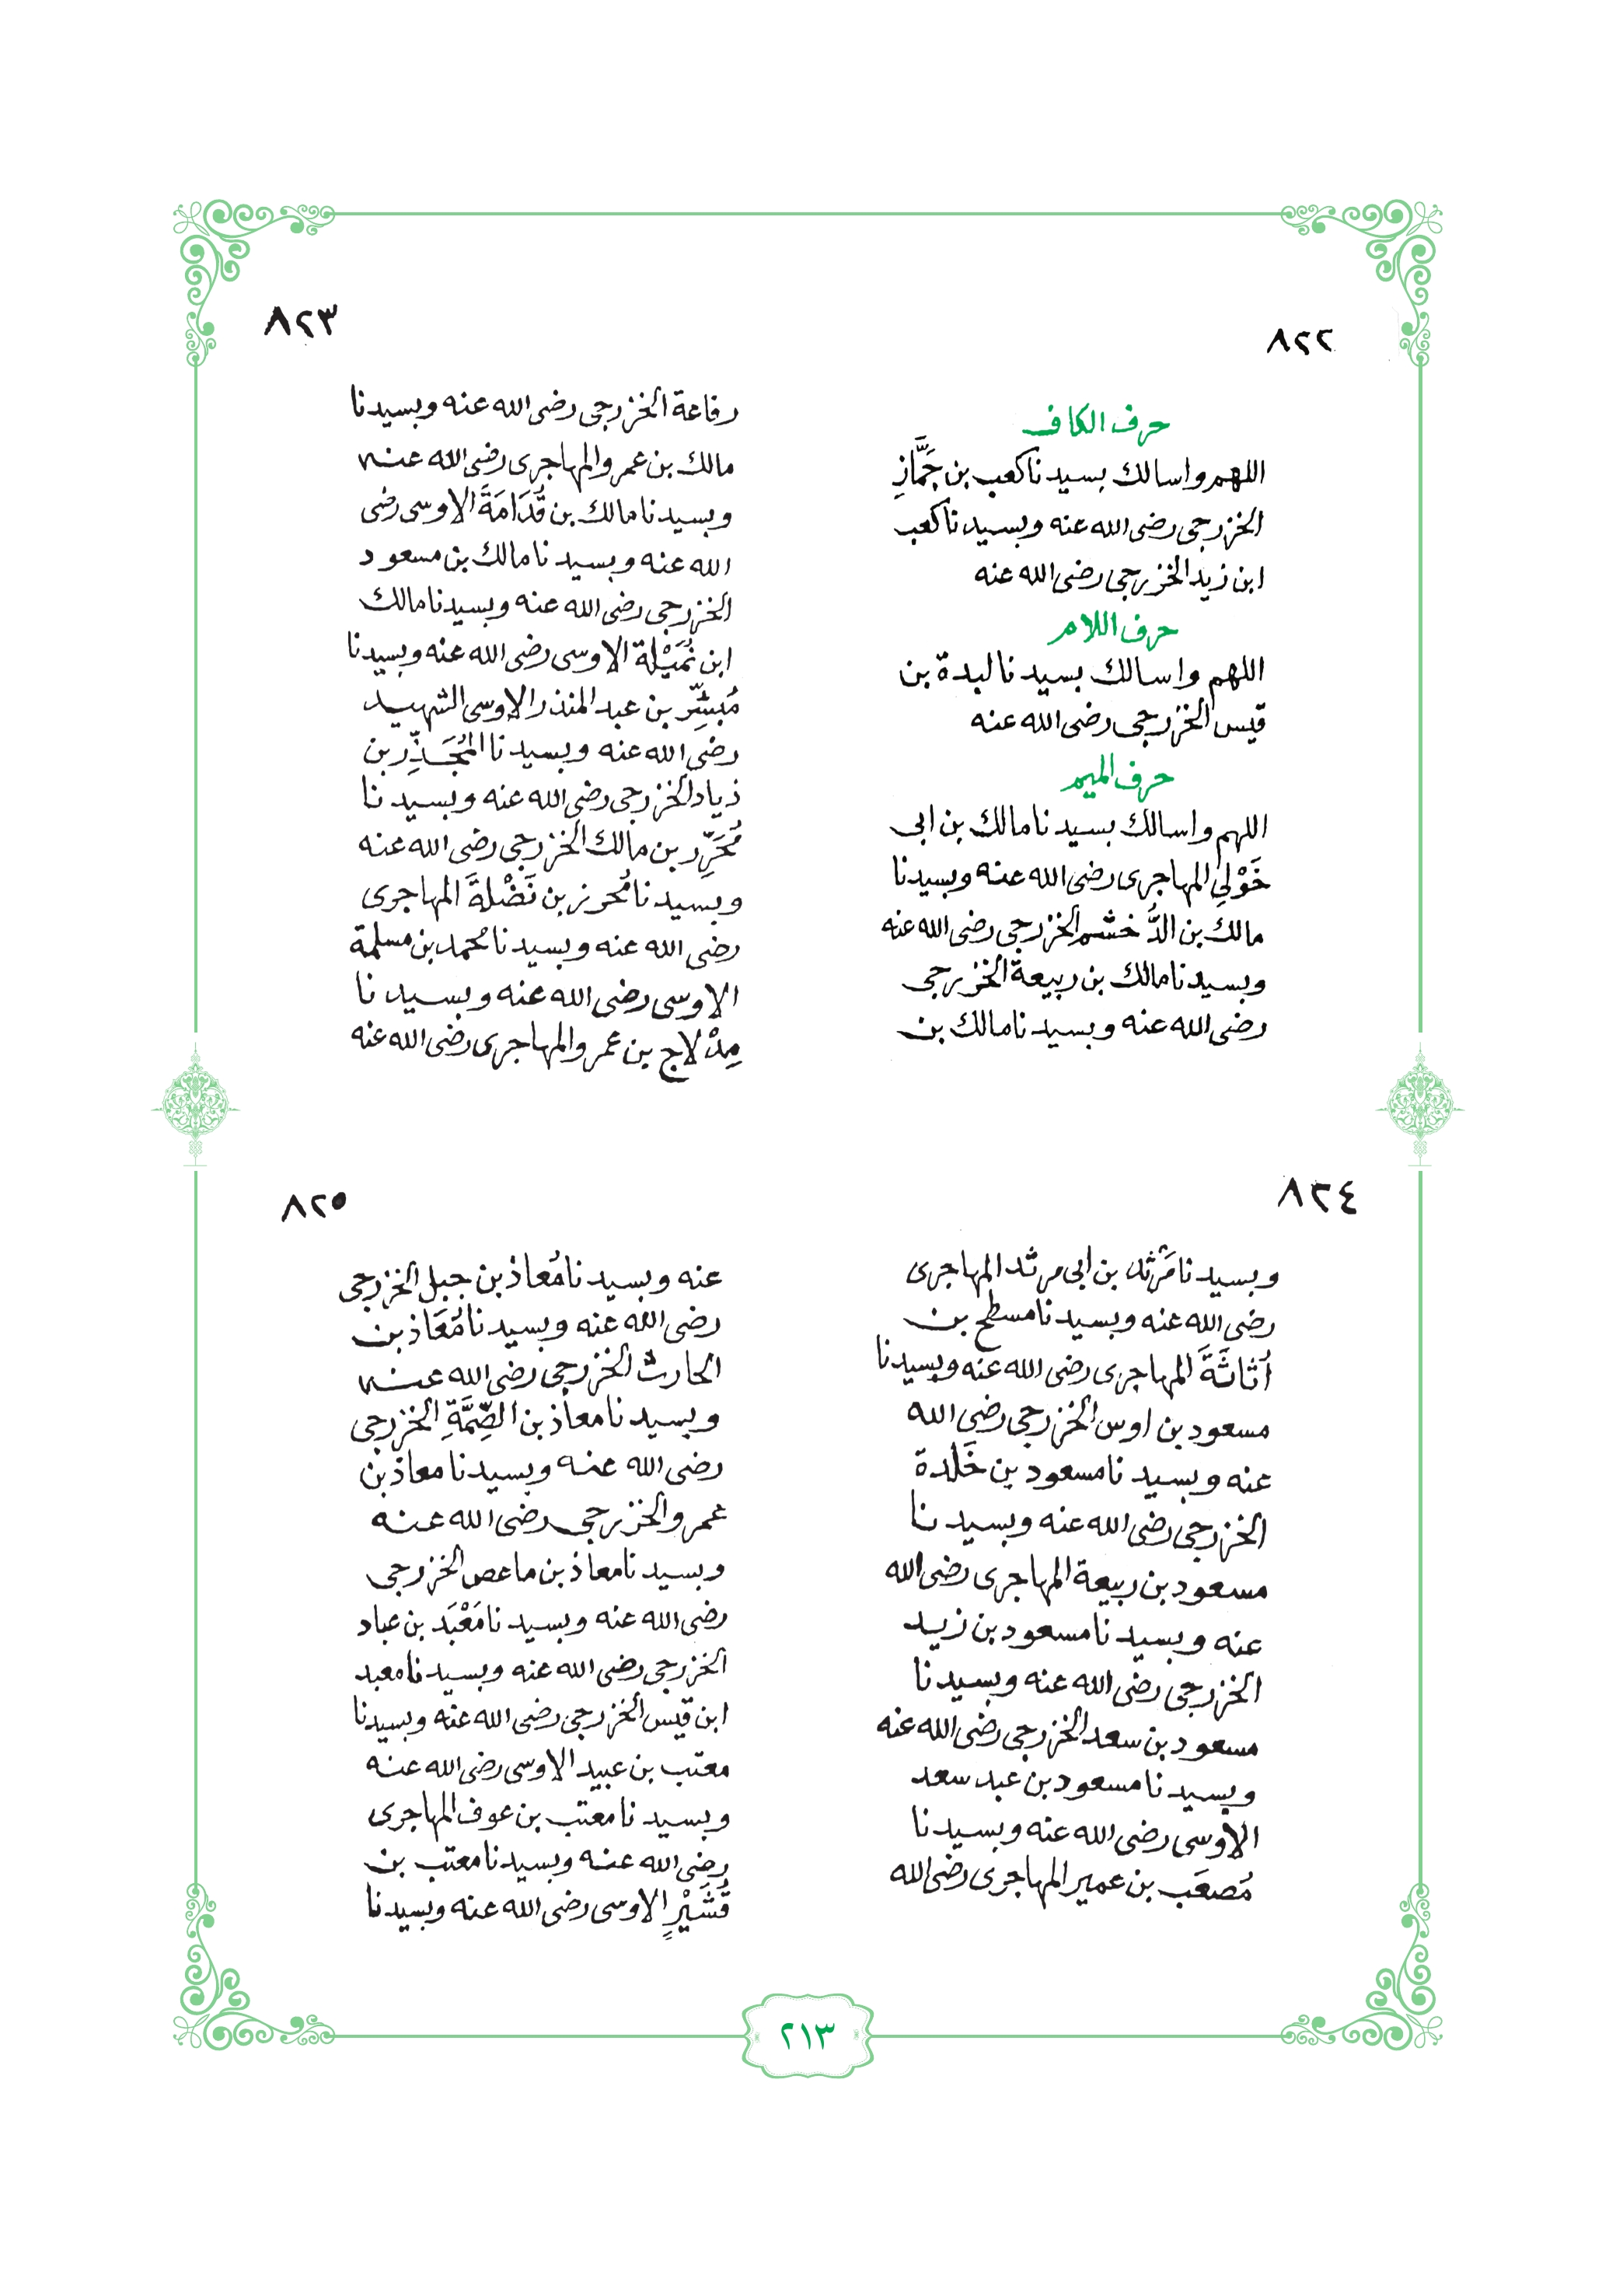 ٨٢٢
حرف الكاف
اللهم واسالك بسيدنا كعب بن جَمَّازِ
الخزرجى رضى الله عنه وبسيدنا كعب
ابن زيد الخزرجى رضى الله عنه
حرف اللام
اللهم واسالك بسيدنا لبدة بن
قيس الخزرجى رضى الله عنه
حرف الميم
اللهم واسالك بسيدنا مالك بن ابى
خَوْلِى المهاجرى رضى الله عنه وبسيدنا
مالك بن الدُّخشم الخزرجى رضى الله عنه
وبسيدنا مالك بن ربيعة الخزرجى
رضى الله عنه وبسيدنا مالك بن
٨٢٣
رفاعة الخزرجى رضى الله عنه وبسيدنا
مالك بن عمرو المهاجرى رضى الله عنه
وبسيدنا مالك بن قُدَامَةَ الاوسى رضى
الله عنه وبسيدنا مالك بن مسعود
الخزرجى رضى الله عنه وبسيدنا مالك
ابن نُمَيْلة الاوسى رضى الله عنه وبسيدنا
مُبَشِّر بن عبد المنذر الاوسى الشهيد
رضى الله عنه وبسيدنا المُجَذِّر بن
ذياد الخزرجى رضى الله عنه وبسيدنا
مُحَرِّر بن مالك الخزرجى رضى الله عنه
وبسيدنا مُحرز بن نَضْلةَ المهاجرى
رضى الله عنه وبسيدنا محمد بن مسلمة
الاوسى رضى الله عنه وبسيدنا
مِدْلاج بن عمرو المهاجرى رضى الله عنه
٨٢٤
وبسيدنا مَرْثد بن ابى مرثد المهاجرى
رضى الله عنه وبسيدنا مسطح بن
أُثاثَةَ المهاجرى رضى الله عنه وبسيدنا
مسعود بن اوس الخزرجى رضى الله
عنه وبسيدنا مسعود بن خَلدة
الخزرجى رضى الله عنه وبسيدنا
مسعود بن ربيعة المهاجرى رضى الله
عنه وبسيدنا مسعود بن زيد
الخزرجى رضى الله عنه وبسيدنا
مسعود بن سعد الخزرجى رضى الله عنه
وبسيدنا مسعود بن عبد سعد
الاوسى رضى الله عنه وبسيدنا
مُصعَب بن عمير المهاجرى رضى الله
٨٢٥
عنه وبسيدنا مُعاذ بن جبل الخزرجى
رضى الله عنه وبسيدنا مُعَاذ بن
الحارث الخزرجى رضى الله عنه
وبسيدنا معاذ بن الصِّمَّةِ الخزرجى
رضى الله عنه وبسيدنا معاذ بن
عمرو الخزرجى رضى الله عنه
وبسيدنا معاذ بن ماعص الخزرجى
رضى الله عنه وبسيدنا مَعْبَد بن عباد
الخزرجى رضى الله عنه وبسيدنا معبد
ابن قيس الخزرجى رضى الله عنه وبسيدنا
معتب بن عبيد الاوسى رضى الله عنه
وبسيدنا معتب بن عوف المهاجرى
رضى الله عنه وبسيدنا معتب بن
قُشَيْرٍ الاوسى رضى الله عنه وبسيدنا
٢١٣